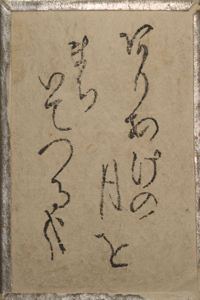 ありあけの
月を
まち
いてつる哉